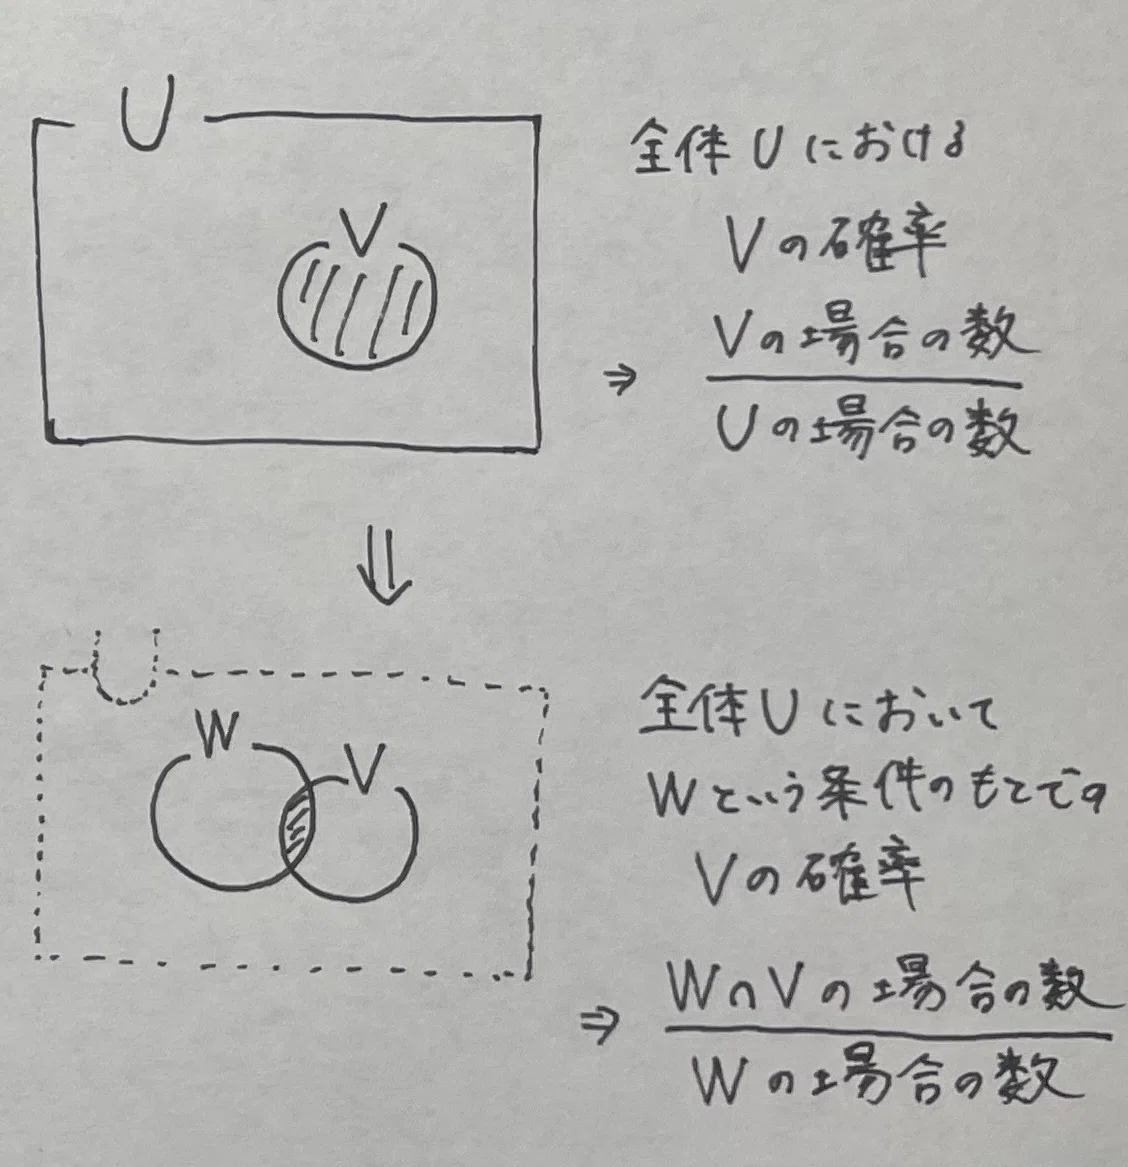 U
V
全体Uにおける
Vの確率
⇒ Vの場合の数
Uの場合の数
⇓
U
W
V
全体Uにおいて
Wという条件のもとでの
Vの確率
⇒ W∩Vの場合の数
Wの場合の数